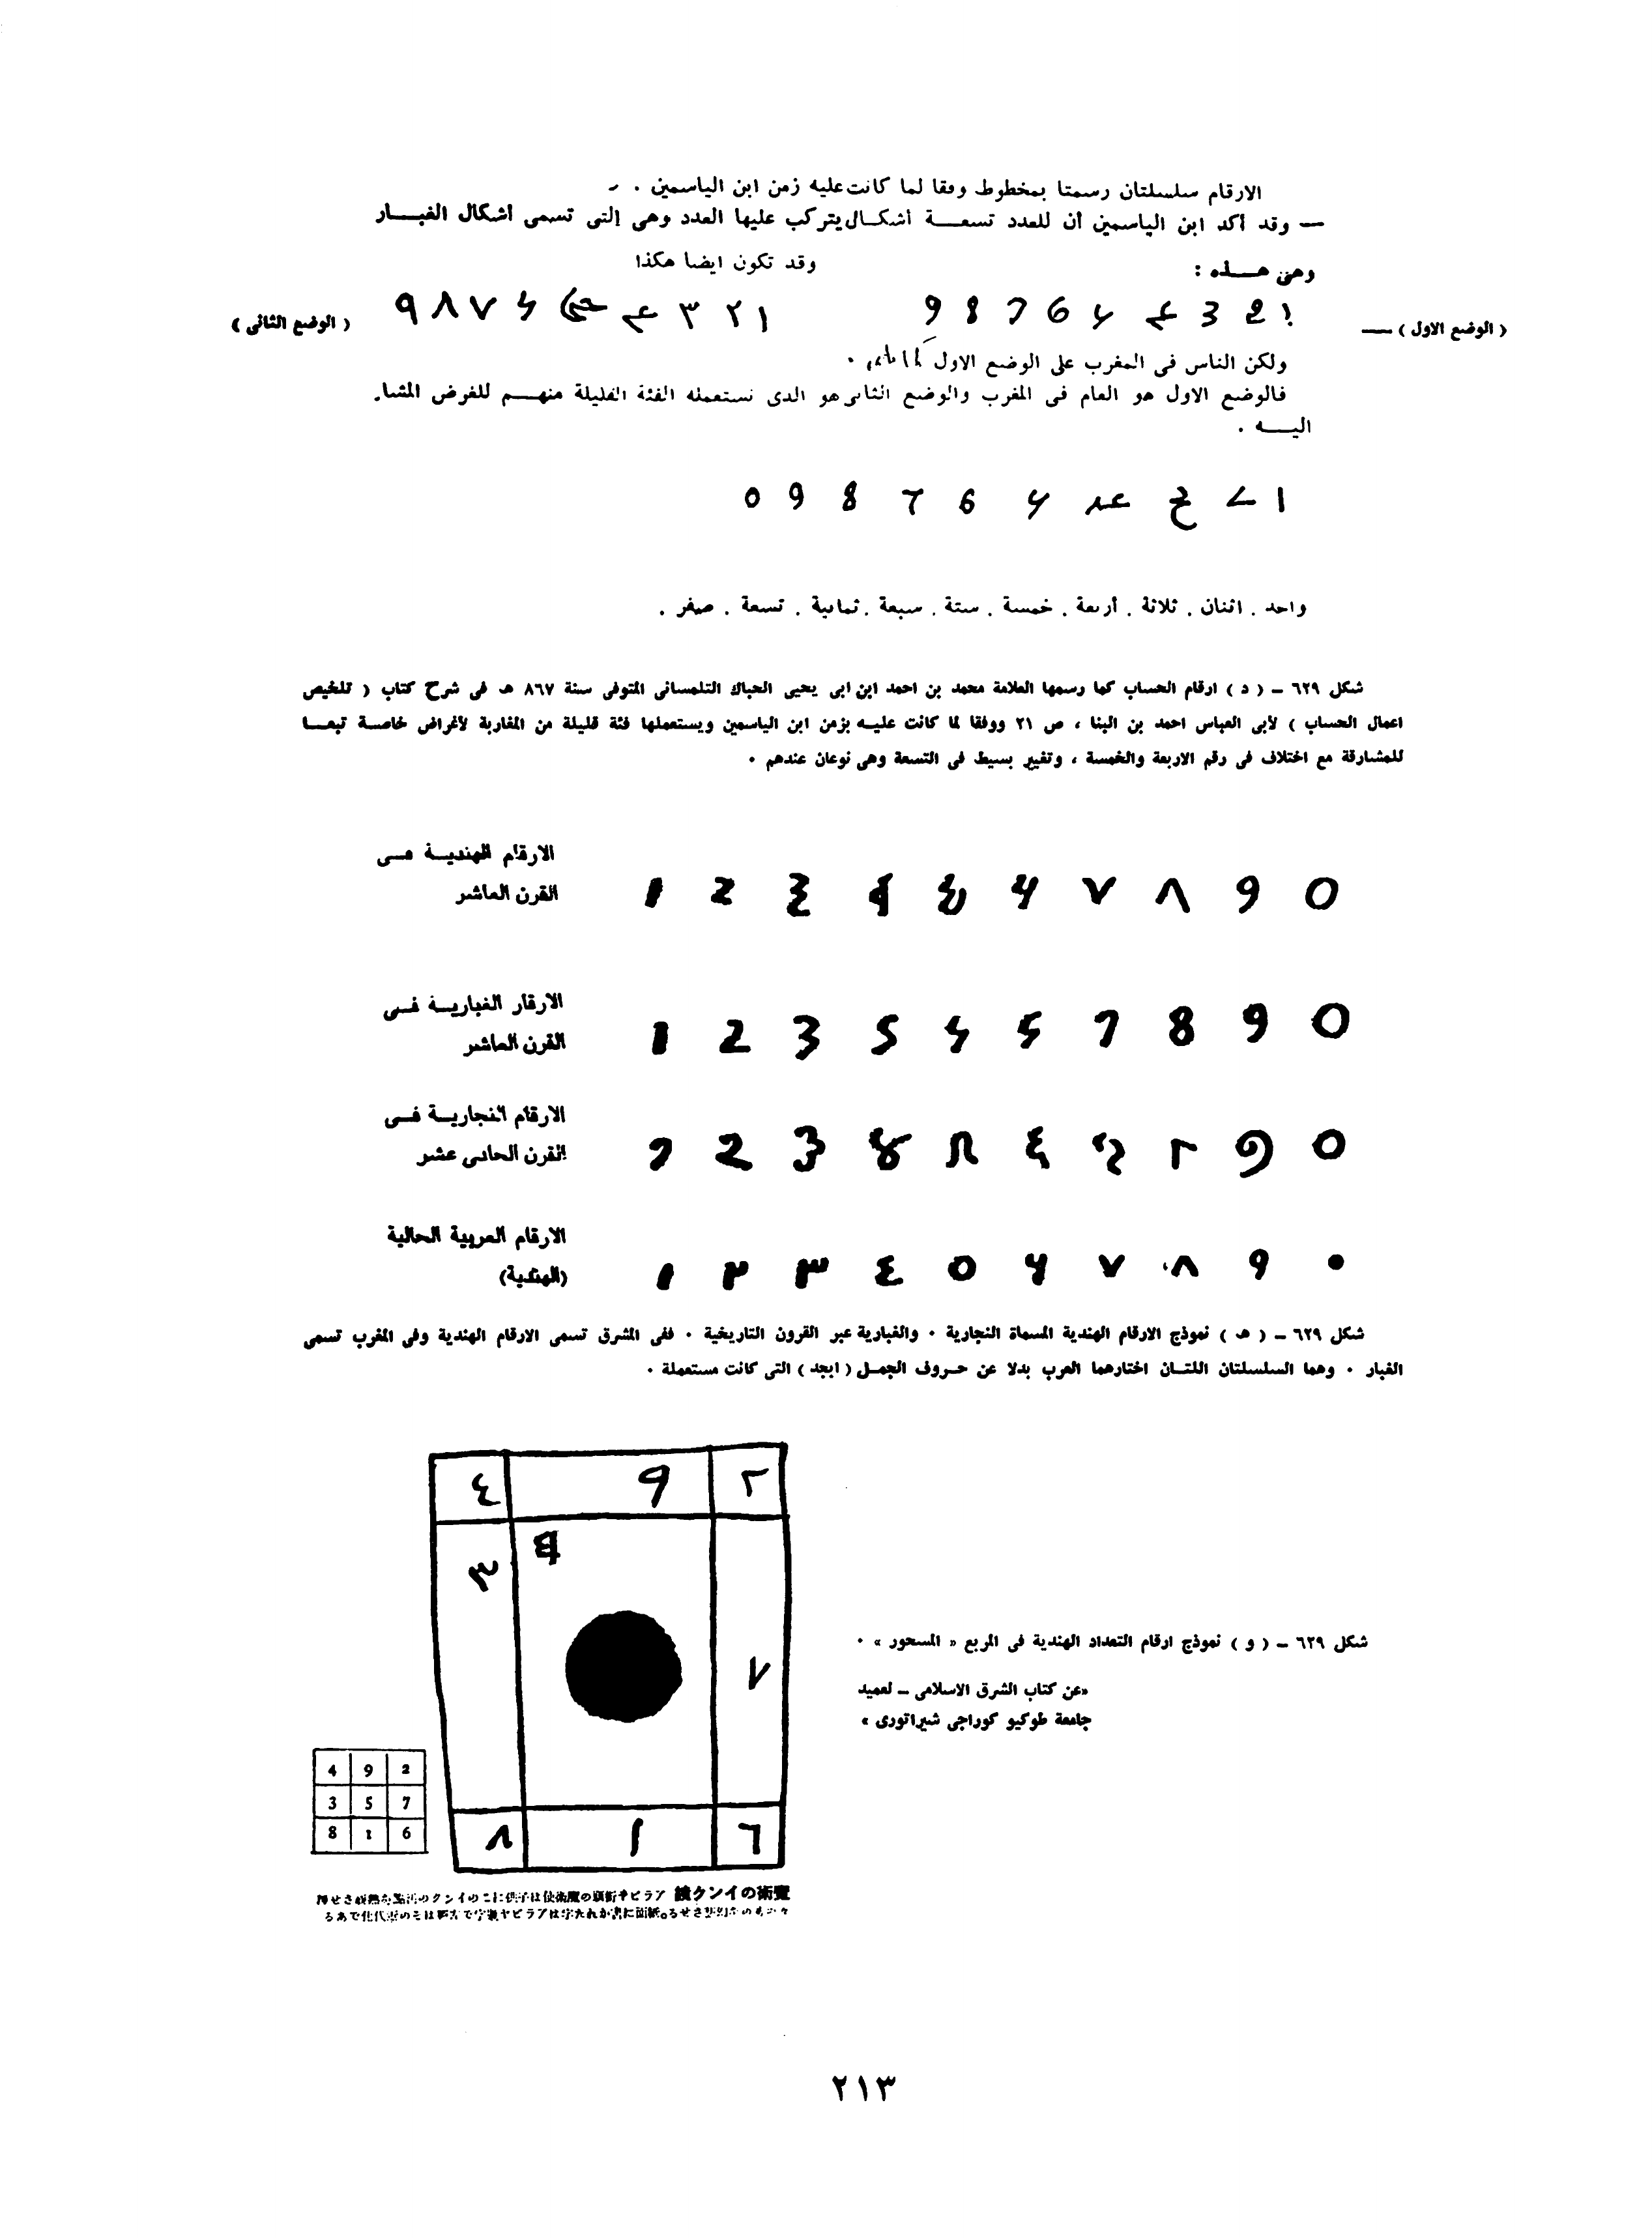 الارقام سلسلتان رسمتا بمخطوط وفقا لما كانت عليه زمن ابن الياسمين .
— وقد أكد ابن الياسمين أن للعدد تسعة أشكال يتركب عليها العدد وهى التى تسمى أشكال الغبار
وهى هذه :
وقد تكون ايضا هكذا
( الوضع الاول ) —
9 8 7 6
3 2 1
( الوضع الثانى )
٩ ٨ ٧
٣ ٢ ١
ولكن الناس فى المغرب على الوضع الاول
فالوضع الاول هو العام فى المغرب والوضع الثانى هو الذى تستعمله الفئة القليلة منهم للغرض المشار
اليه .
0 9 8 7 6
واحد . اثنان . ثلاثة . أربعة . خمسة . ستة . سبعة . ثمانية . تسعة . صفر .
شكل ٦٢٩ – ( د ) ارقام الحساب كما رسمها العلامة محمد بن احمد ابن ابى يحيى الحباك التلمسانى المتوفى سنة ٨٦٧ هـ فى شرح كتاب ( تلخيص
اعمال الحساب ) لأبى العباس احمد بن البنا ، ص ٢١ ووفقا لما كانت عليه بزمن ابن الياسمين ويستعملها فئة قليلة من المغاربة لأغراض خاصة تبعا
للمشارقة مع اختلاف فى رقم الاربعة والخمسة ، وتغيير بسيط فى التسعة وهى نوعان عندهم .
الارقام الهندية فى
القرن العاشر
1 2
٧ ٨ 9 0
الارقار الغبارية فى
القرن العاشر
1 2 3
7 8 9 0
الارقام النجارية فى
القرن الحادى عشر
2 3
0
الارقام العربية الحالية
(الهندية)
١ ٢ ٣ ٤ ٥ ٦ ٧ ٨ ٩ ٠
شكل ٦٢٩ – ( هـ ) نموذج الارقام الهندية المسماة النجارية . والغبارية عبر القرون التاريخية . ففى المشرق تسمى الارقام الهندية وفى المغرب تسمى
الغبار . وهما السلسلتان اللتان اختارهما العرب بدلا عن حروف الجمل ( ابجد ) التى كانت مستعملة .
٤ ٩ ٢
٣ ٧
٨ ١ ٦
شكل ٦٢٩ – ( و ) نموذج ارقام التعداد الهندية فى المربع « المسحور » .
«عن كتاب الشرق الاسلامى – لعميد
جامعة طوكيو كوراجى شيراتورى »
4 9 2
3 5 7
8 1 6
٢١٣